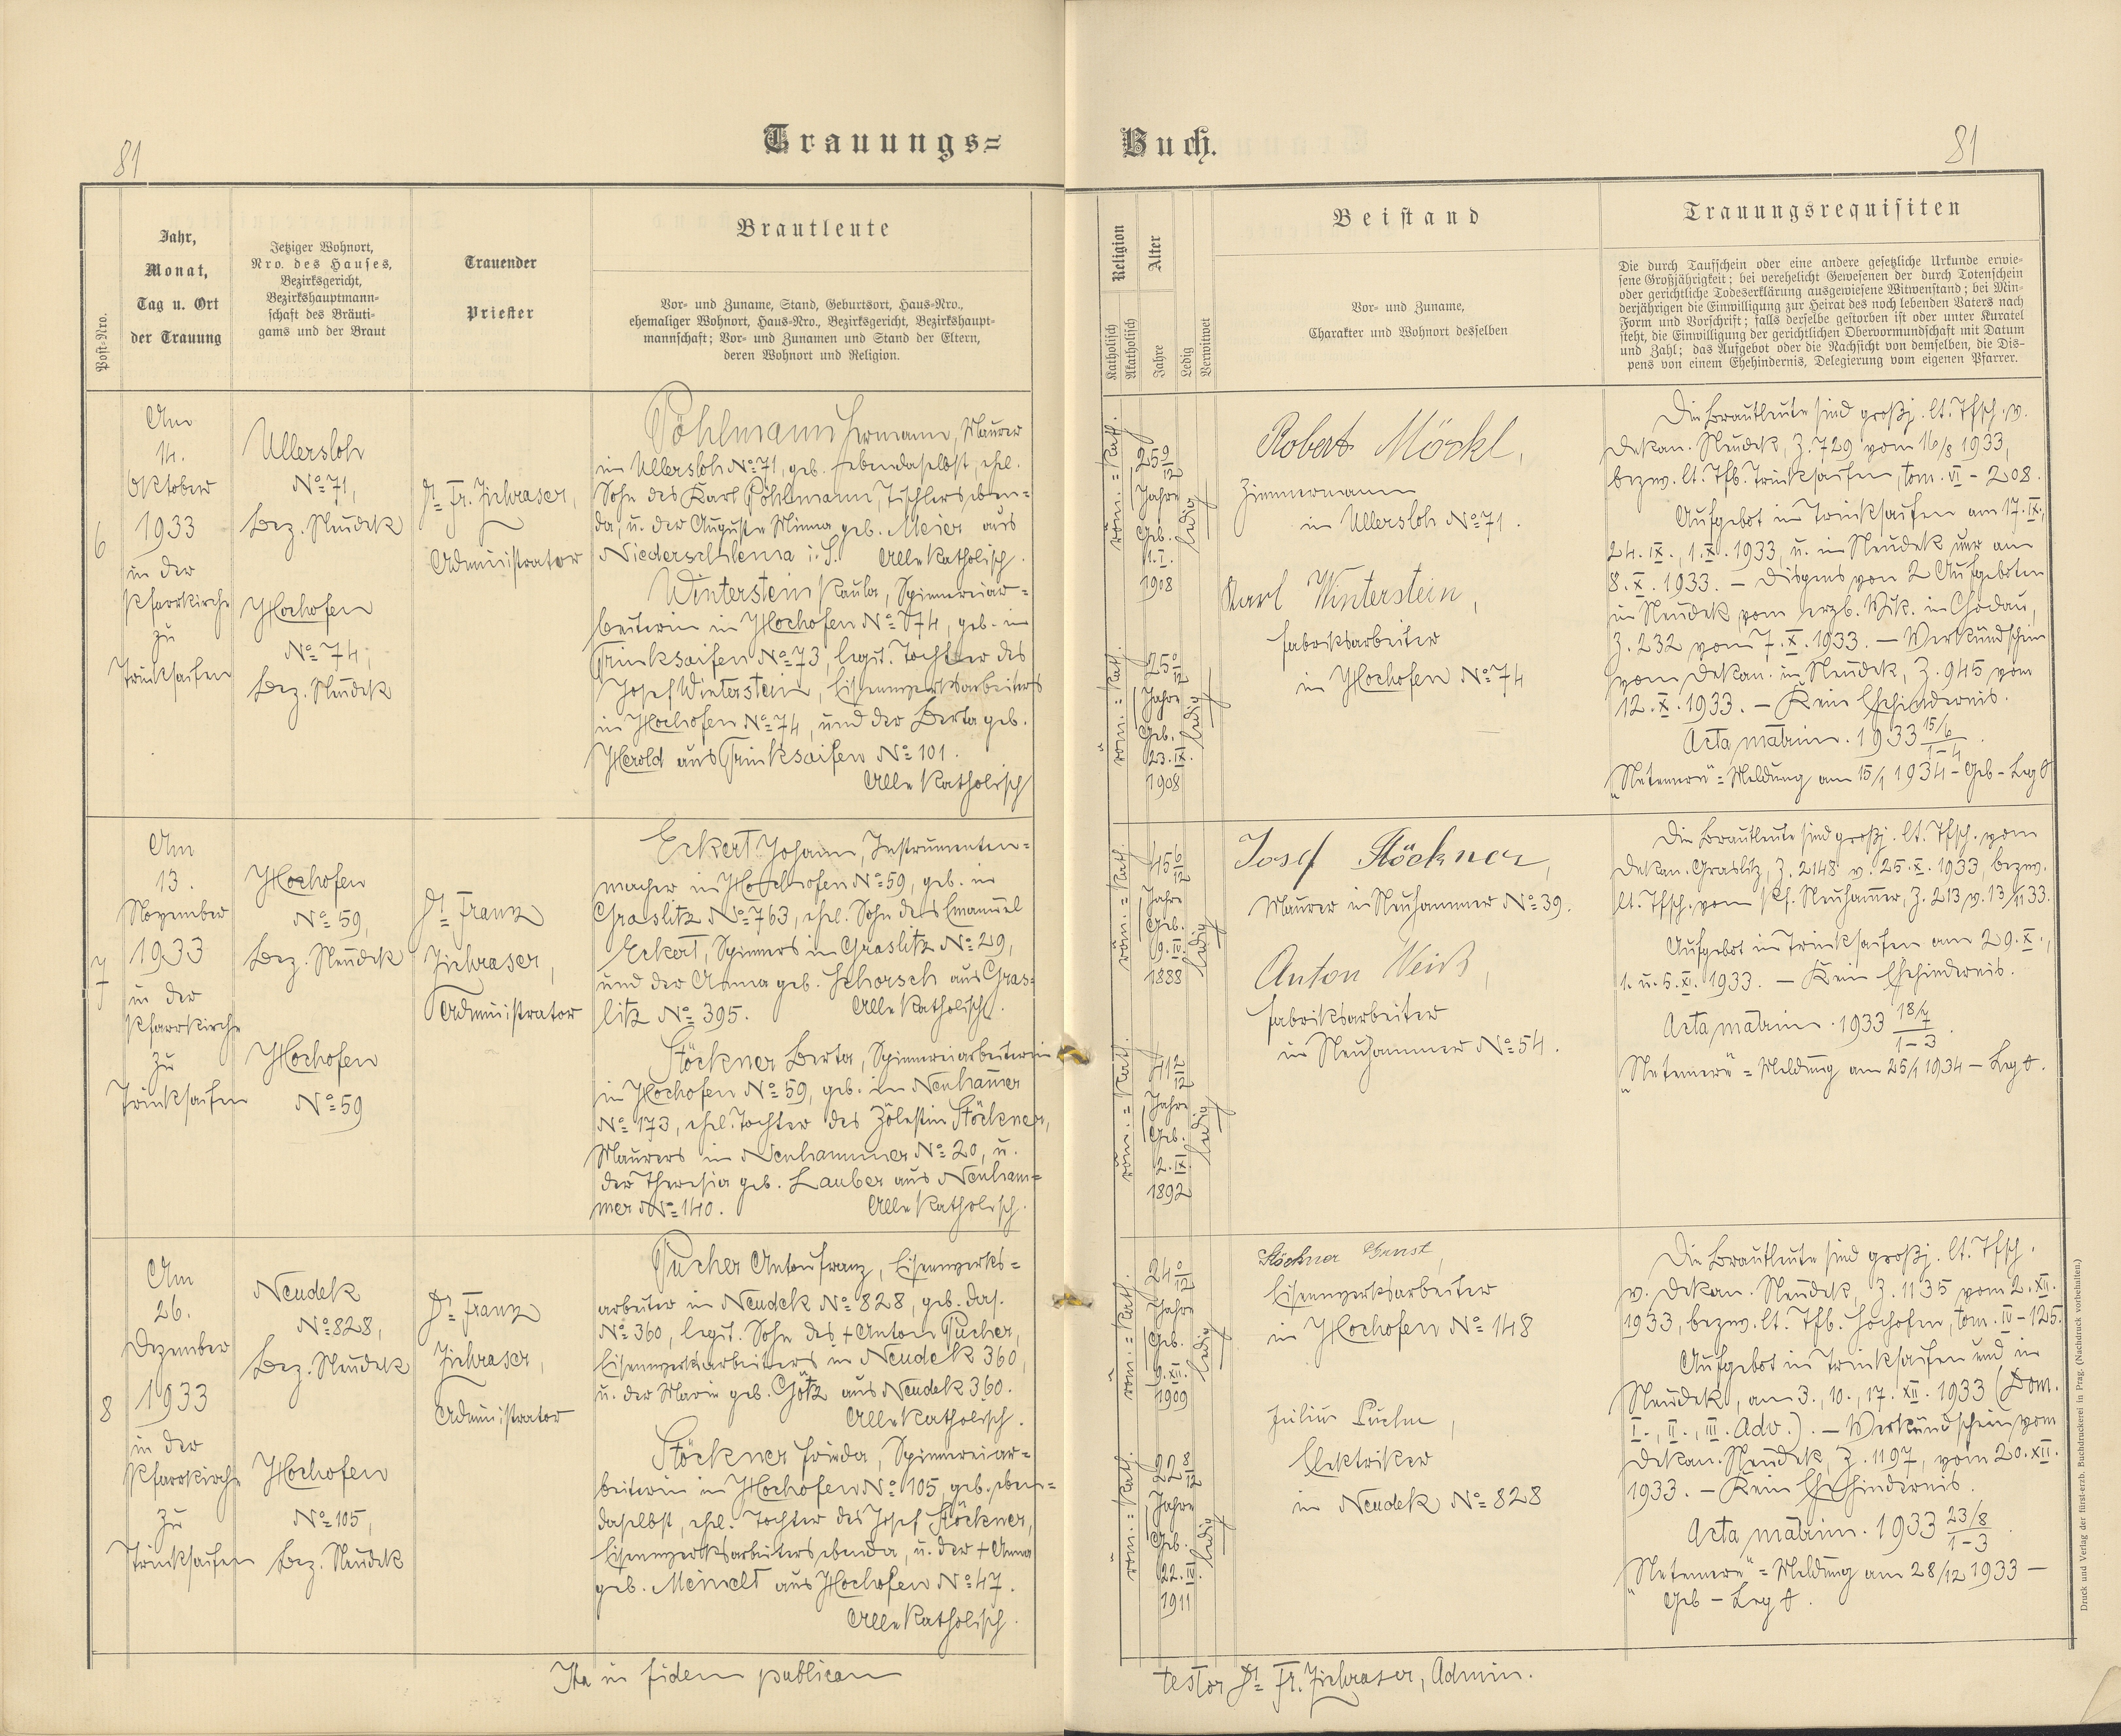 81
Trauungs=
Post-Nro.
Jahr,
Monat,
Tag u. Ort
der Trauung
Jetziger Wohnort,
Nro. des Hauses,
Bezirksgericht,
Bezirkshauptmann-
schaft des Bräuti-
gams und der Braut
Trauender
Priester
Brautleute
Vor- und Zuname, Stand, Geburtsort, Haus-Nro.,
ehemaliger Wohnort, Haus-Nro., Bezirksgericht, Bezirkshaupt-
mannschaft; Vor- und Zunamen und Stand der Eltern,
deren Wohnort und Religion.
6
Am
14.
Oktober
1933
in der
Pfarrkirche
zu
Trinksaifen
Ullersloh
No 71,
Bez. Neudek
Hochofen
No 74,
Bez. Neudek
Dr. Fr. Ziehraser,
Administrator
Pöhlmann Hermann, Maurer
in Ullersloh No 71, geb. ebendaselbst, ehel.
Sohn des Karl Pöhlmann, Tischlers eben-
da, u. der Auguste Minna geb. Meier aus
Niederschlema i. S. Alle katholisch.
Winterstein Paula, Spinnereiar-
beiterin in Hochofen No 74, geb. in
Trinksaifen No 73, legit. Tochter des
Josef Winterstein, Eisenwerksarbeiters
in Hochofen No 74, und der Berta geb.
Herold aus Trinksaifen No 101.
Alle katholisch
7
Am
13.
November
1933
in der
Pfarrkirche
zu
Trinksaifen
Hochofen
No 59,
Bez. Neudek
Hochofen
No 59
Dr. Franz
Ziehraser,
Administrator
Eckert Johann, Instrumenten-
macher in Hochofen No 59, geb. in
Graslitz No 763, ehel. Sohn des Emanuel
Eckert, Spinners in Graslitz No 29,
und der Anna geb. Schorsch aus Gras-
litz No 395. Alle katholisch.
Stöckner Berta, Spinnereiarbeiterin
in Hochofen No 59, geb. in Neuham̄er
No 173, ehel. Tochter des Zölestin Stöckner,
Maurers in Neuhammer No 20, u.
der Theresia geb. Lauber aus Neuham-
mer No 140. Alle katholisch.
8
Am
26.
Dezember
1933
in der
Pfarrkirche
zu
Trinksaifen
Neudek
No 828,
Bez. Neudek
Hochofen
No 105,
Bez. Neudek
Dr. Franz
Ziehraser,
Administrator
Pucher Anton Franz, Eisenwerks-
arbeiter in Neudek No 828, geb. das.
No 360, legit. Sohn des + Anton Pucher,
Eisenwerksarbeiters in Neudek 360,
u. der Marie geb. Götz aus Neudek 360.
Alle katholisch.
Stöckner Frieda, Spinnereiar-
beiterin in Hochofen No 105, geb. eben-
daselbst, ehel. Tochter des Josef Stöckner,
Eisenwerksarbeiters ebenda, u. der + Anna
geb. Meinelt aus Hochofen No 47.
Alle katholisch.
Ita in fidem publicam
Buch.
81
Religion
Katholisch
Akatholisch
Alter
Jahre
Ledig
Verwitwet
Beistand
Vor- und Zuname,
Charakter und Wohnort desselben
Trauungsrequisiten
Die durch Taufschein oder eine andere gesetzliche Urkunde erwie-
sene Großjährigkeit; bei verehelicht Gewesenen der durch Totenschein
oder gerichtliche Todeserklärung ausgewiesene Witwenstand; bei Min-
derjährigen die Einwilligung zur Heirat des noch lebenden Vaters nach
Form und Vorschrift; falls derselbe gestorben ist oder unter Kuratel
steht, die Einwilligung der gerichtlichen Obervormundschaft mit Datum
und Zahl; das Aufgebot oder die Nachsicht von demselben, die Dis-
pens von einem Ehehindernis, Delegierung vom eigenen Pfarrer.
röm.=kath.
25 9/12
Jahre
Geb.
11. I.
1908
ledig
röm.=kath.
25 0/12
Jahre
Geb.
23. IX.
1908
ledig
Robert Möckl,
Zimmermann
in Ullersloh No 71.
Karl Winterstein,
Fabriksarbeiter
in Hochofen No 74
Die Brautleute sind großj. lt. Tfsch. v.
Dekan. Neudek, Z. 729 vom 16/8 1933,
bezw. lt. Tfb. Trinksaifen, tom. VI - 208.
Aufgebot in Trinksaifen am 17. IX.,
24. IX., 1. X. 1933, u. in Neudek nur am
8. X. 1933. — Dispens von 2 Aufgeboten
in Neudek vom erzb. Vik. in Chodau,
Z. 232 vom 7. X. 1933. — Verkündschein
vom Dekan. in Neudek, Z. 945 vom
12. X. 1933. — Kein Ehehindernis.
Acta matrim. 1933 15/6 1-4.
"Netemere"=Meldung am 15/1 1934 - Geb -
röm.=kath.
45 6/12
Jahre
Geb.
9. IV.
1888
ledig
röm.=kath.
41 2/12
Jahre
Geb.
2. IX.
1892
ledig
Josef Stöckner,
Maurer in Neuhammer No 39.
Anton Weiß,
Fabriksarbeiter
in Neuhammer No 54.
Die Brautleute sind großj. lt. Tfsch. vom
Dekan. Graslitz, Z. 2148 v. 25. X. 1933, bezw.
lt. Tfsch. vom Pf. Neuham̄er, Z. 213 v. 13/11 33.
Aufgebot in Trinksaifen am 29. X.,
1. u. 5. XI. 1933. — Kein Ehehindernis.
Acta matrim. 1933 18/7 1-3.
"Netemere"=Meldung am 25/1 1934 —
röm.=kath.
24 0/12
Jahre
Geb.
9. XII.
1909
ledig
röm.=kath.
22 8/12
Jahre
Geb.
22. IV.
1911
ledig
Stöckner Ernst,
Eisenwerksarbeiter
in Hochofen No 148
Julius,
Elektriker
in Neudek No 828
Die Brautleute sind großj. lt. Tfsch.
v. Dekan. Neudek, Z. 1135 vom 2. XII.
1933, bezw. lt. Tfb. Hochofen, tom. IV - 125.
Aufgebot in Trinksaifen und in
Neudek, am 3., 10., 17. XII. 1933 (Dom.
I., II., III. Adv.). — Verkündschein vom
Dekan. Neudek, Z. 1197, vom 20. XII.
1933. — Kein Ehehindernis.
Acta matrim. 1933 23/8 1-3.
"Netemere"=Meldung am 28/12 1933 —
Geb -
testor Dr. Fr. Ziehraser, Admin.
Druck und Verlag der fürst-erzb. Buchdruckerei in Prag. (Nachdruck vorbehalten.)